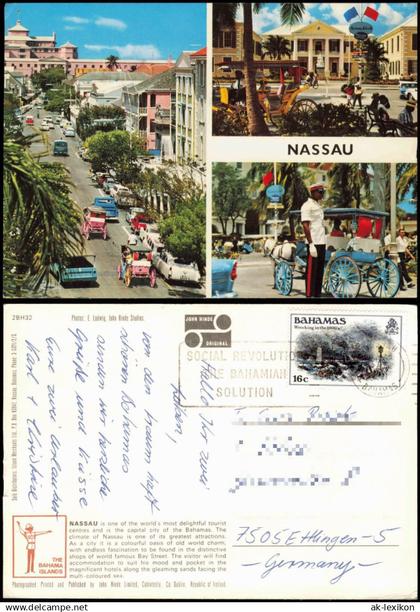 NASSAU
2BH32
Photos: E. Ludwig, John Hinde Studios.
JOHN HINDE
ORIGINAL
BAHAMAS
Wrecking in the 1800's
16c
SOCIAL REVOLUTION
THE BAHAMIAN
SOLUTION
Hallo Ihr zwei
von den traumhaft
schönen Bahamas
senden wir herzliche
Grüße und Küsse
Eure zwei Urlauber
Karl + Christiane
7505 Ettlingen-5
- Germany -
THE
BAHAMA
ISLANDS
NASSAU is one of the world's most delightful tourist
centres and is the capital city of the Bahamas. The
climate of Nassau is one of its greatest attractions.
As a city it is a colourful oasis of old world charm,
with endless fascination to be found in the distinctive
shops of world famous Bay Street. The visitor will find
accommodation to suit his mood and pocket in the
magnificent hotels along the gleaming sands facing the
multi-coloured sea.
Photographed Printed and Published by John Hinde Limited, Cabinteely, Co. Dublin, Republic of Ireland.